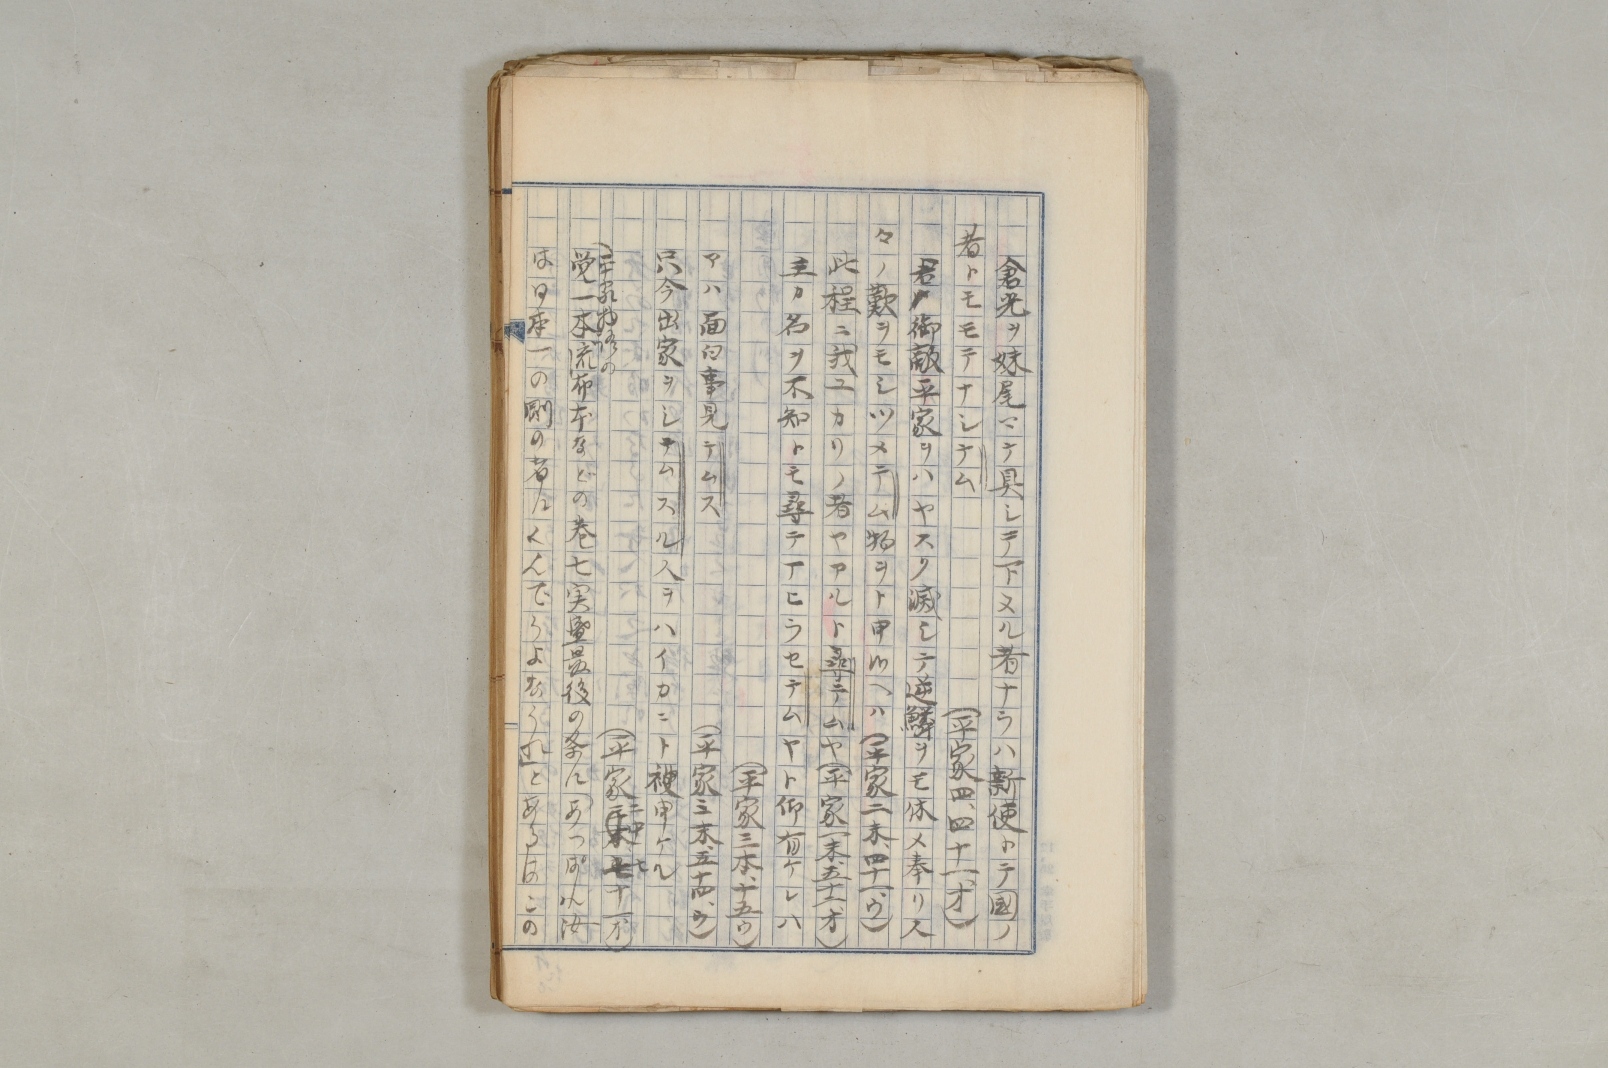 倉光ヲ妹尾ニテ具シテ下ヌル者ナラハ新使トテ国ノ
者トモモテナシテム
(平家四、四十一、オ)
君ノ御敵平家ヲハヤスク滅シテ逆鱗ヲモ休メ奉リ人
々ノ歎ヲモシツメテム物ヲト申ツヘハ(平家二末、四十一、ウ)
此程ニ我ユカリノ者ヤアルト尋テムヤ(平家一末、五十一、オ)
主カ名ヲ不知トモ尋テアヒラセテムヤト仰有ケレハ
(平家三本、十五ウ)
マハ面白事見テムス
(平家三末、五十四、ウ)
只今出家ヲシテムスル人ヲハイカニト被申ケル
(平家二中七十一オ)
平家物語の
覚一本流布本などの巻七実盛最後の条に「あつぱれ汝
は日本一の剛の者にくんでうよなうれ」とあるはこの